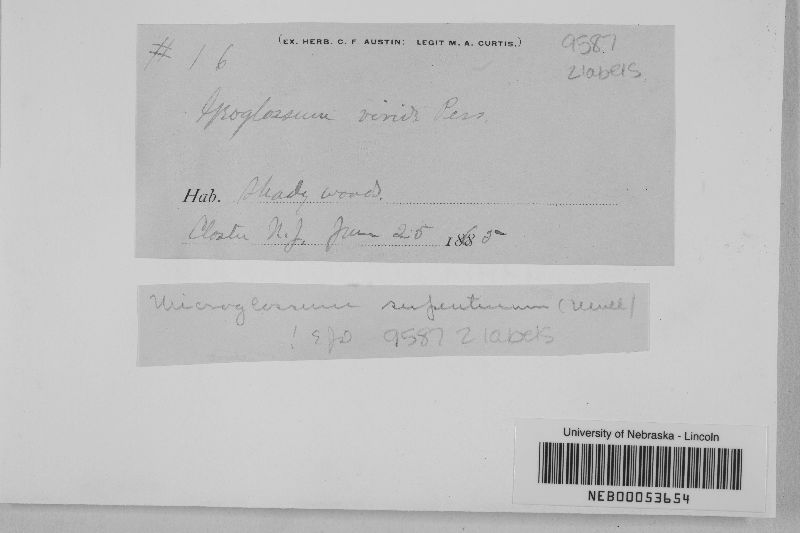 (EX. HERB. C. F AUSTIN: LEGIT M. A. CURTIS.)
# 16
9587
2labels.
viride Pers.
Hab. Shady woods.
Closter N.J. June 25 1865
Microglossum (Wull)
! EJD 9587 2 labels
University of Nebraska - Lincoln
NEB00053654